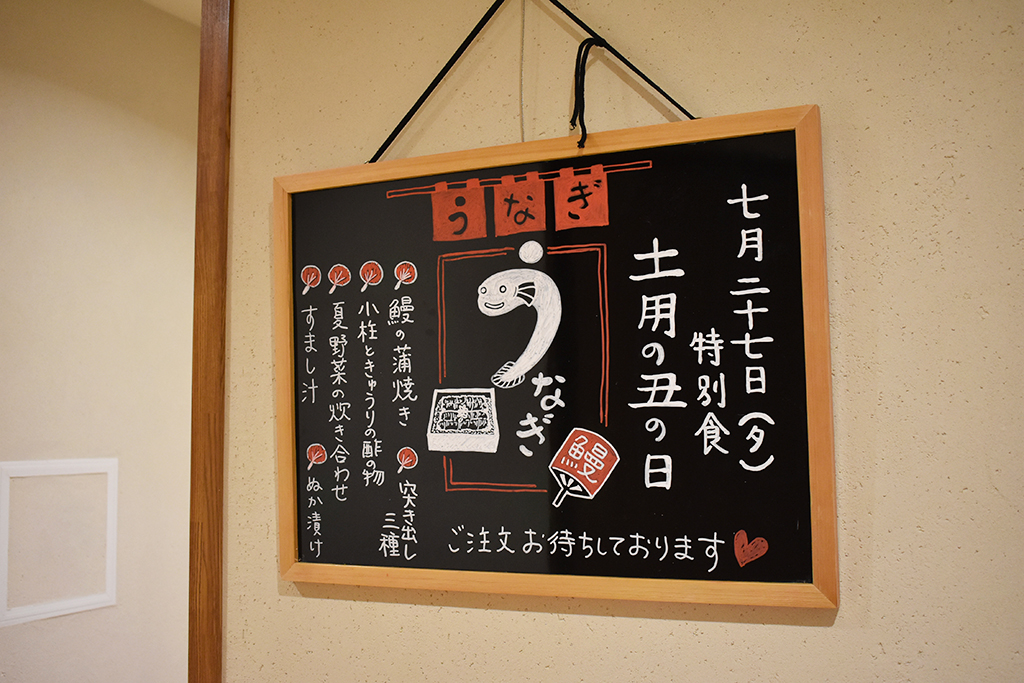 七月二十七日(夕)
特別食
土用の丑の日
うなぎ
うなぎ
鰻
鰻の蒲焼き
突き出し
三種
小柱ときゅうりの酢の物
夏野菜の炊き合わせ
すまし汁
ぬか漬け
ご注文お待ちしております